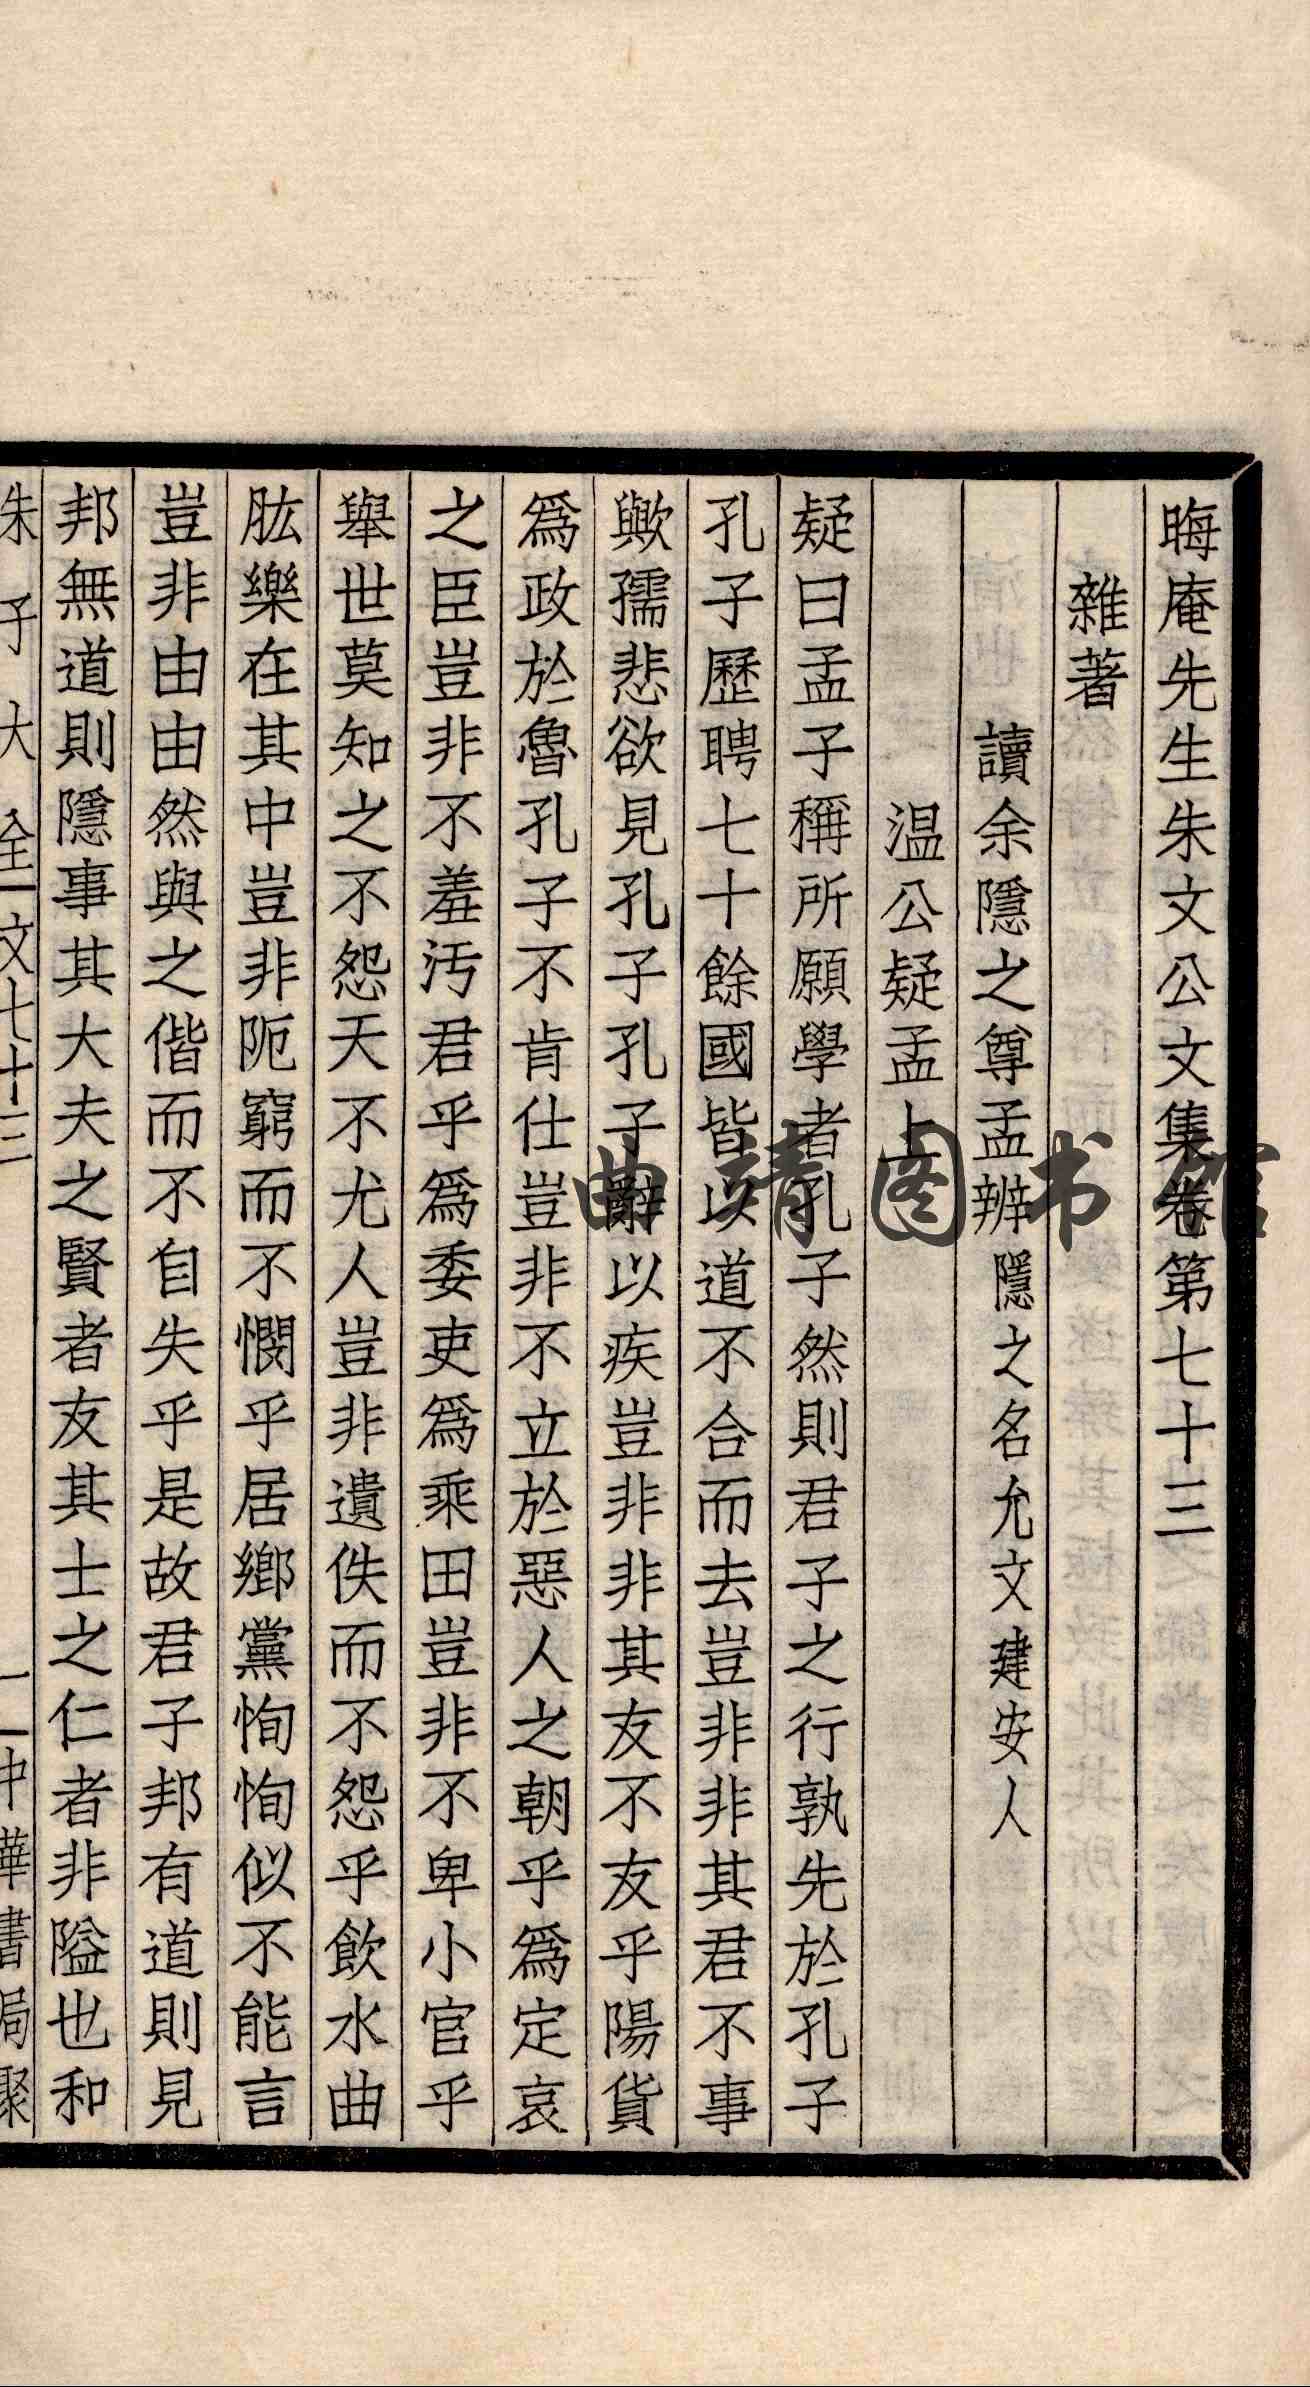 晦庵先生朱文公文集卷第七十三
雜著
讀余隱之尊孟辨隱之名允文建安人
温公疑孟上
疑曰孟子稱所願學者孔子然則君子之行孰先於孔子
孔子歷聘七十餘國皆以道不合而去豈非非其君不事
歟孺悲欲見孔子孔子辭以疾豈非非其友不友乎陽貨
爲政於魯孔子不肯仕豈非不立於惡人之朝乎爲定哀
之臣豈非不羞汚君乎爲委吏爲乘田豈非不卑小官乎
舉世莫知之不怨天不尤人豈非遺佚而不怨乎飲水曲
肱樂在其中豈非阨窮而不憫乎居鄉黨恂恂似不能言
豈非由由然與之偕而不自失乎是故君子邦有道則見
邦無道則隱事其大夫之賢者友其士之仁者非隘也和
朱子大全 文七十三 一 中華書局聚
曲靖图书馆